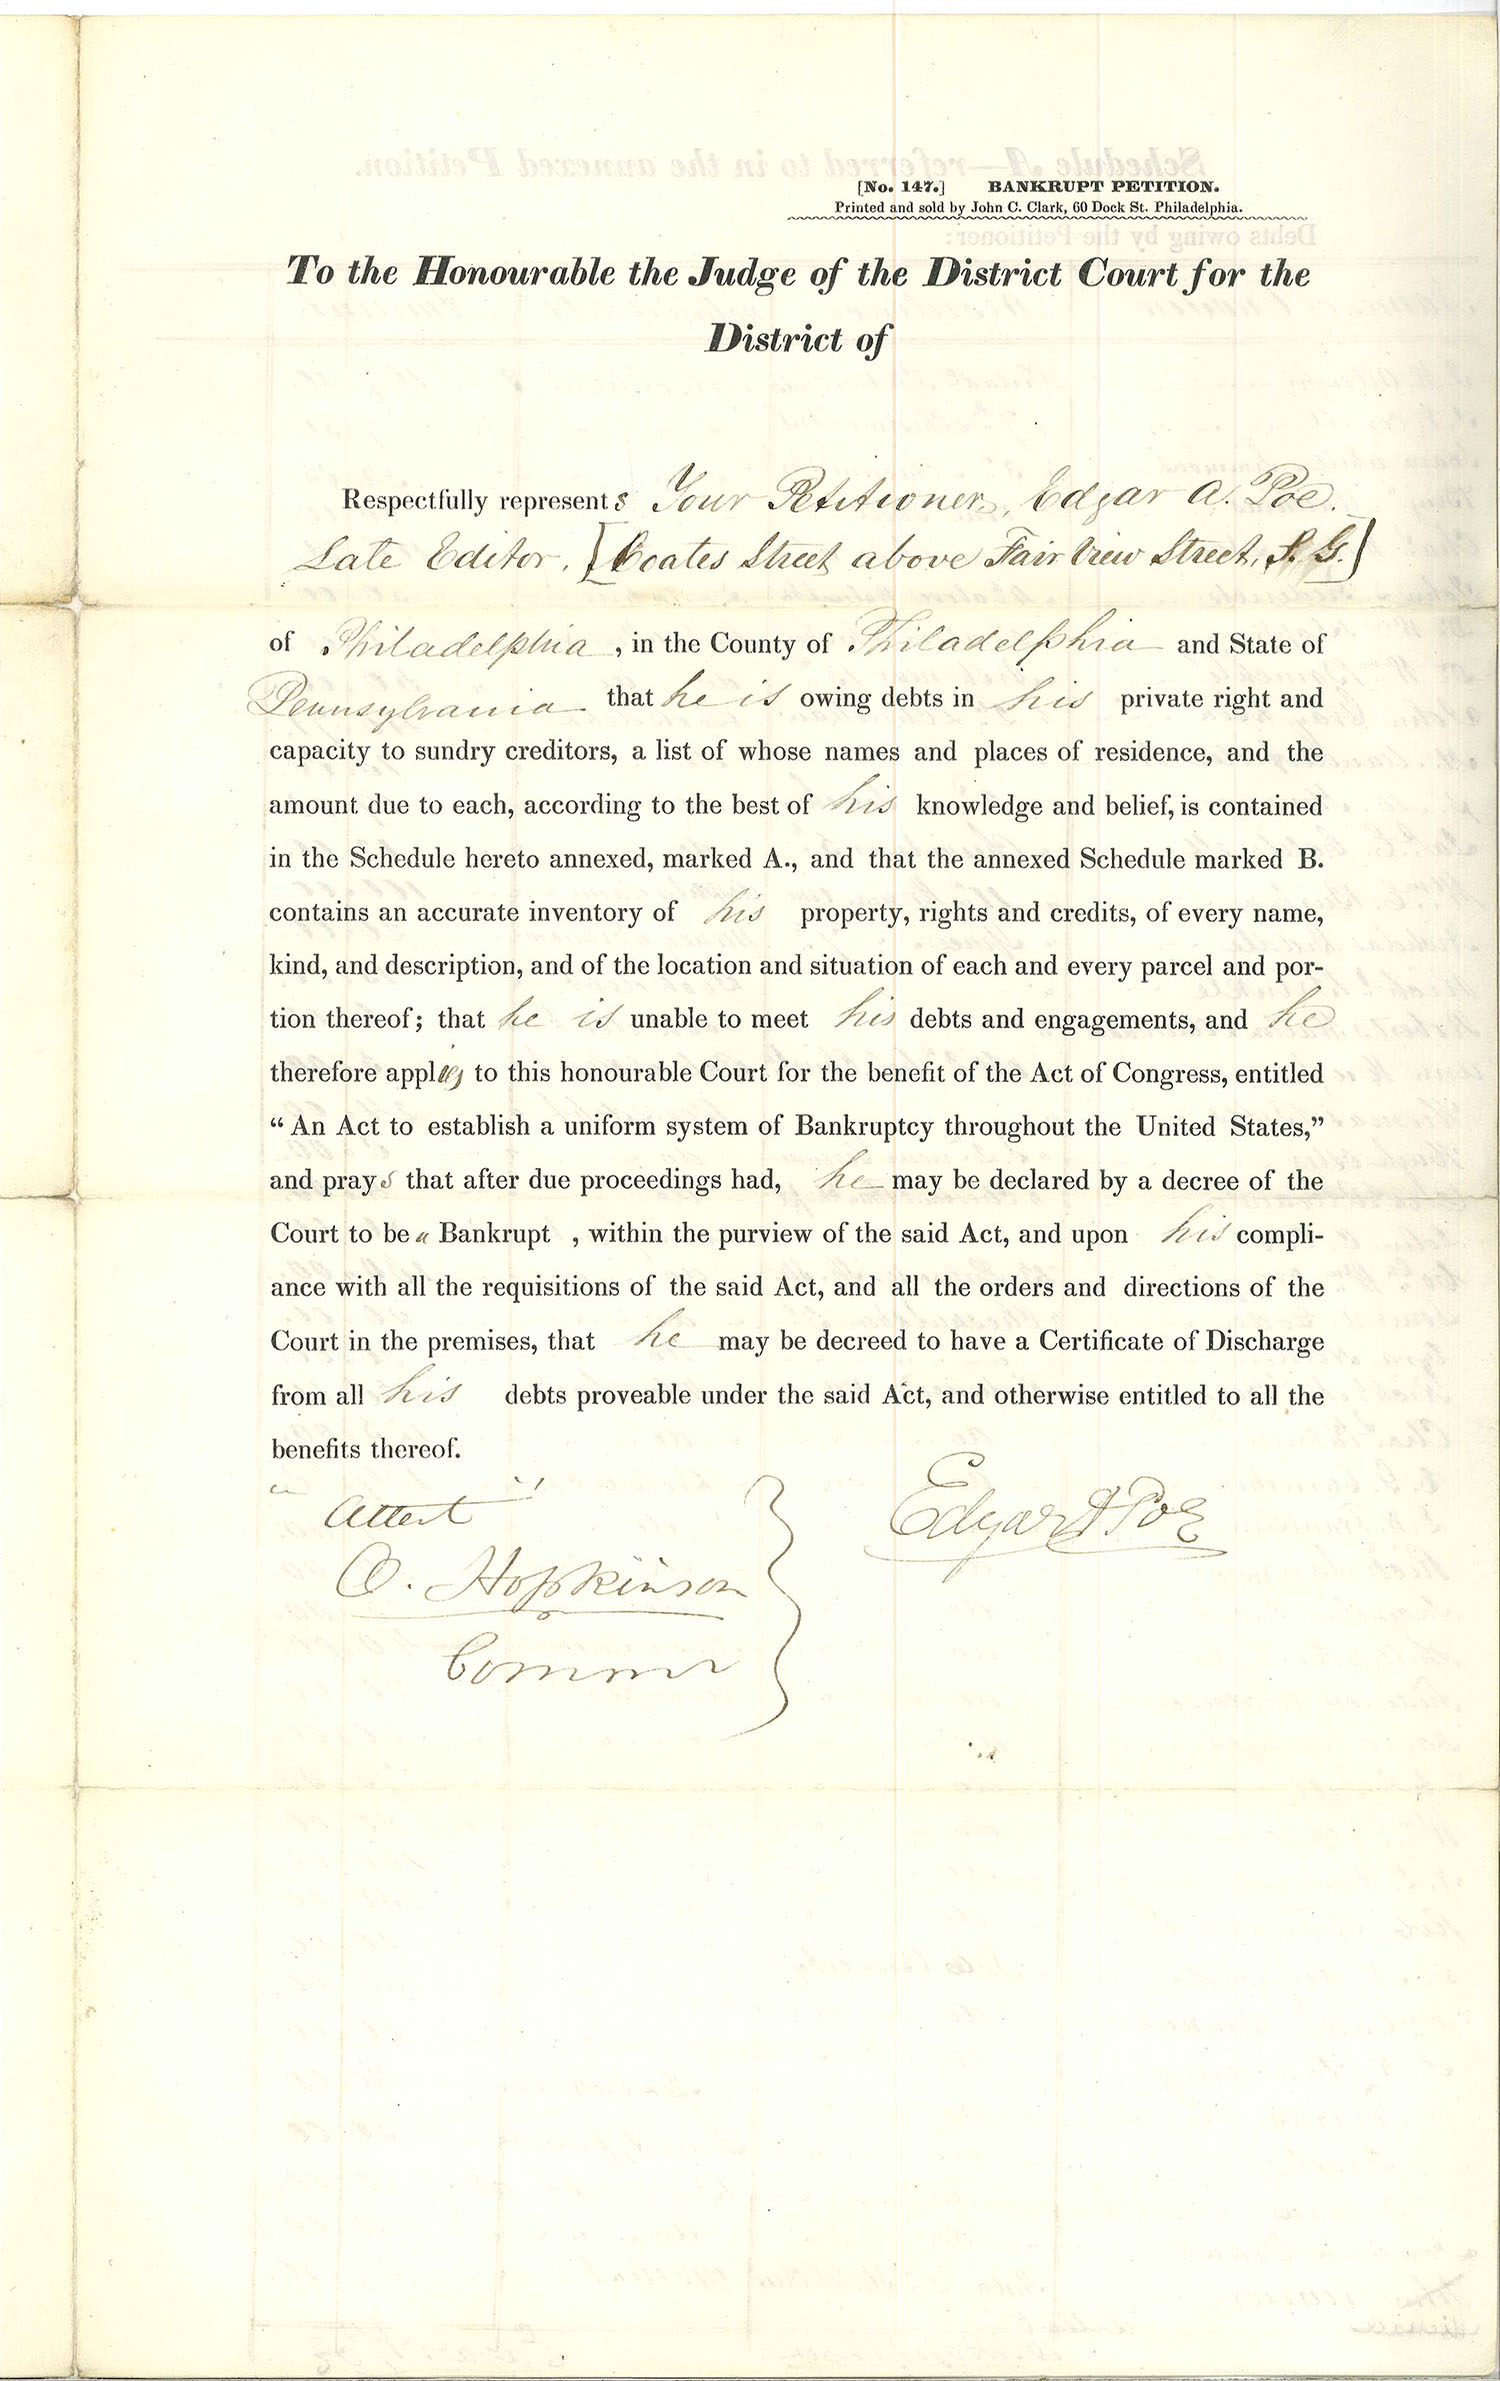 [No. 147.] BANKRUPT PETITION.
Printed and sold by John C. Clark, 60 Dock St. Philadelphia.
To the Honourable the Judge of the District Court for the
District of
Respectfully represents Your Petitioner, Edgar A. Poe.
Late Editor. [Coates Street above Fair View Street, S. G.]
of Philadelphia, in the County of Philadelphia and State of
Pennsylvania that he is owing debts in his private right and
capacity to sundry creditors, a list of whose names and places of residence, and the
amount due to each, according to the best of his knowledge and belief, is contained
in the Schedule hereto annexed, marked A., and that the annexed Schedule marked B.
contains an accurate inventory of his property, rights and credits, of every name,
kind, and description, and of the location and situation of each and every parcel and por-
tion thereof; that he is unable to meet his debts and engagements, and he
therefore applies to this honourable Court for the benefit of the Act of Congress, entitled
“An Act to establish a uniform system of Bankruptcy throughout the United States,”
and prays that after due proceedings had, he may be declared by a decree of the
Court to be a Bankrupt , within the purview of the said Act, and upon his compli-
ance with all the requisitions of the said Act, and all the orders and directions of the
Court in the premises, that he may be decreed to have a Certificate of Discharge
from all his debts proveable under the said Act, and otherwise entitled to all the
benefits thereof.
Attest
Edgar A Poe
O. Hopkinson
Commr
Schedule A—referred to in the annexed Petition.
Debts owing by the Petitioner: